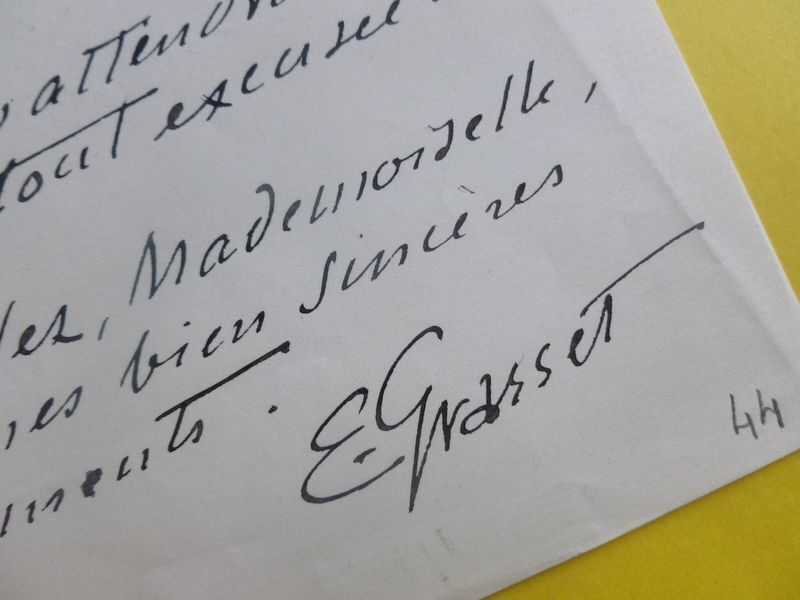 attendr
tout excusée
ez, Mademoiselle,
es bien sincères
ments.
E. Grasset
44